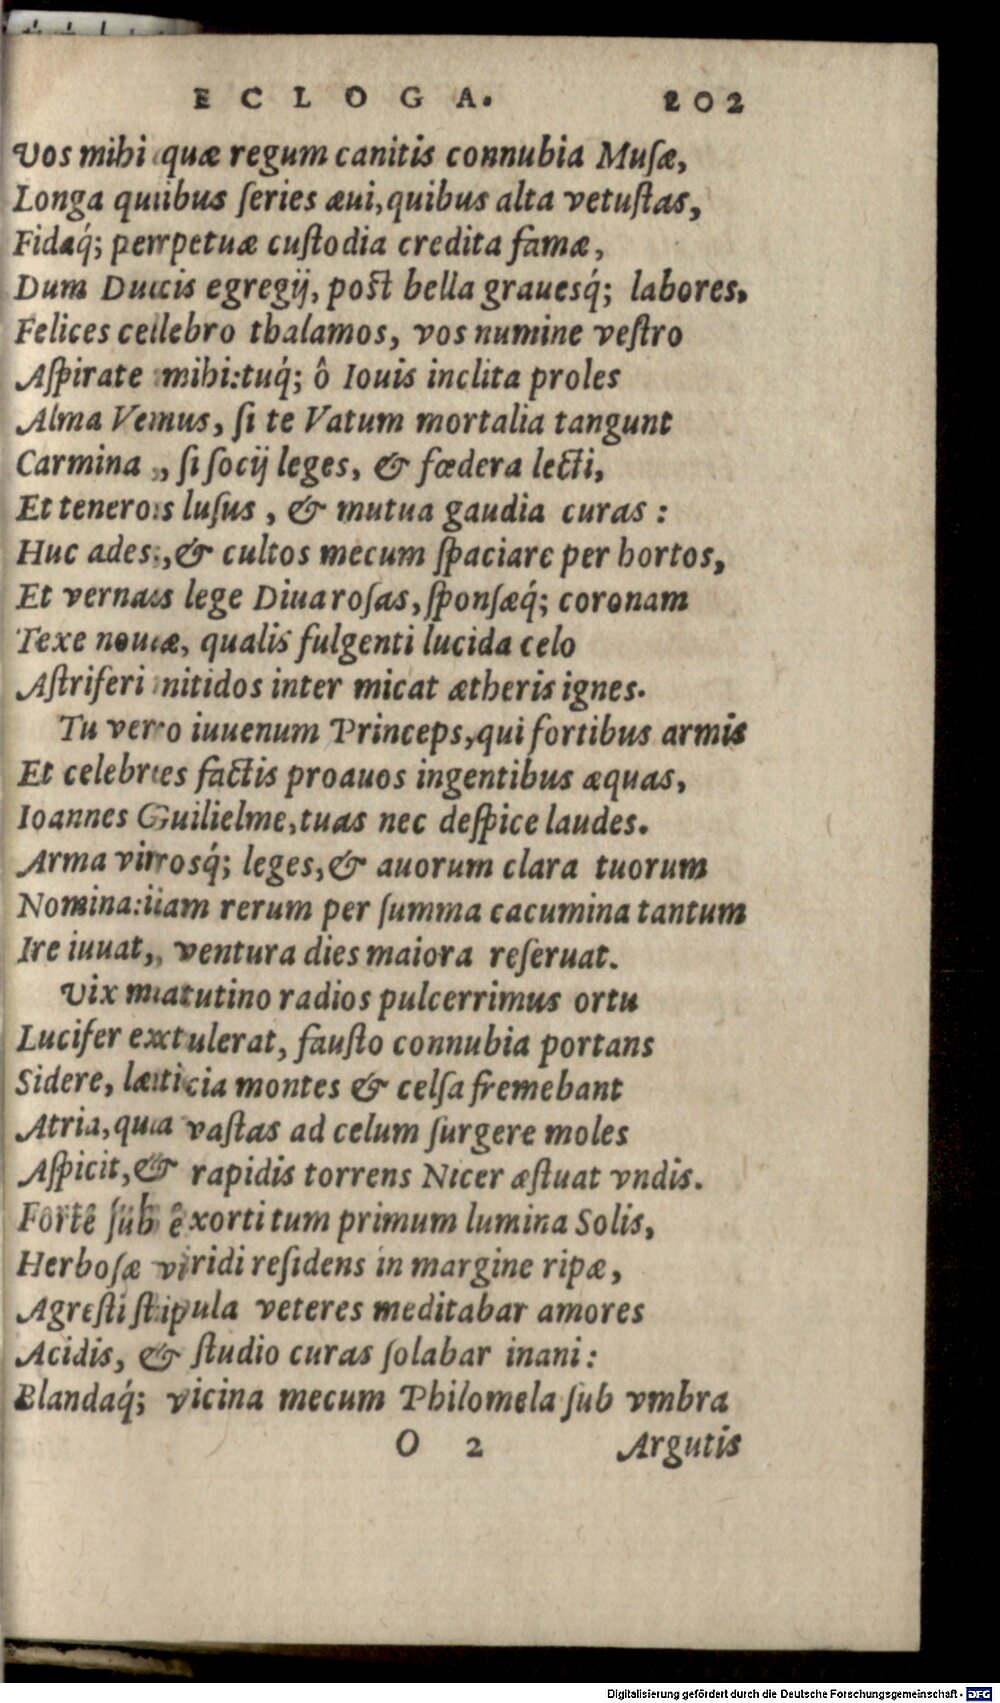 ECLOGA. 202
Vos mihi quæ regum canitis connubia Muſæ,
Longa quibus ſeries æui, quibus alta vetuſtas,
Fidaq́; perpetuæ cuſtodia credita famæ,
Dum Ducis egregij, poſt bella grauesq́; labores,
Felices celebro thalamos, vos numine veſtro
Aſpirate mihi: tuq́; ô Iouis inclita proles
Alma Venus, ſi te Vatum mortalia tangunt
Carmina, ſi ſocij leges, & fœdera lecti,
Et teneros luſus, & mutua gaudia curas:
Huc ades, & cultos mecum ſpaciare per hortos,
Et vernas lege Diua roſas, ſponſæq́; coronam
Texe nouæ, qualis fulgenti lucida celo
Aſtriferi nitidos inter micat ætheris ignes.
Tu vero iuuenum Princeps, qui fortibus armis
Et celebres factis proauos ingentibus æquas,
Ioannes Guilielme, tuas nec deſpice laudes.
Arma virosq́; leges, & auorum clara tuorum
Nomina: iam rerum per ſumma cacumina tantum
Ire iuuat, ventura dies maiora reſeruat.
Vix matutino radios pulcerrimus ortu
Lucifer extulerat, fauſto connubia portans
Sidere, læticia montes & celſa fremebant
Atria, qua vaſtas ad celum ſurgere moles
Aſpicit, & rapidis torrens Nicer æſtuat vndis.
Forte ſub exorti tum primum lumina Solis,
Herboſæ viridi reſidens in margine ripæ,
Agreſti ſtipula veteres meditabar amores
Acidis, & ſtudio curas ſolabar inani:
Blandaq́; vicina mecum Philomela ſub vmbra
O 2 Argutis
Digitalisierung gefördert durch die Deutsche Forschungsgemeinschaft - DFG